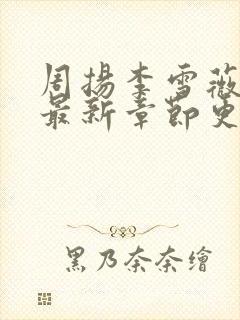 周扬李雪薇
最新章节更
黑乃奈奈繪